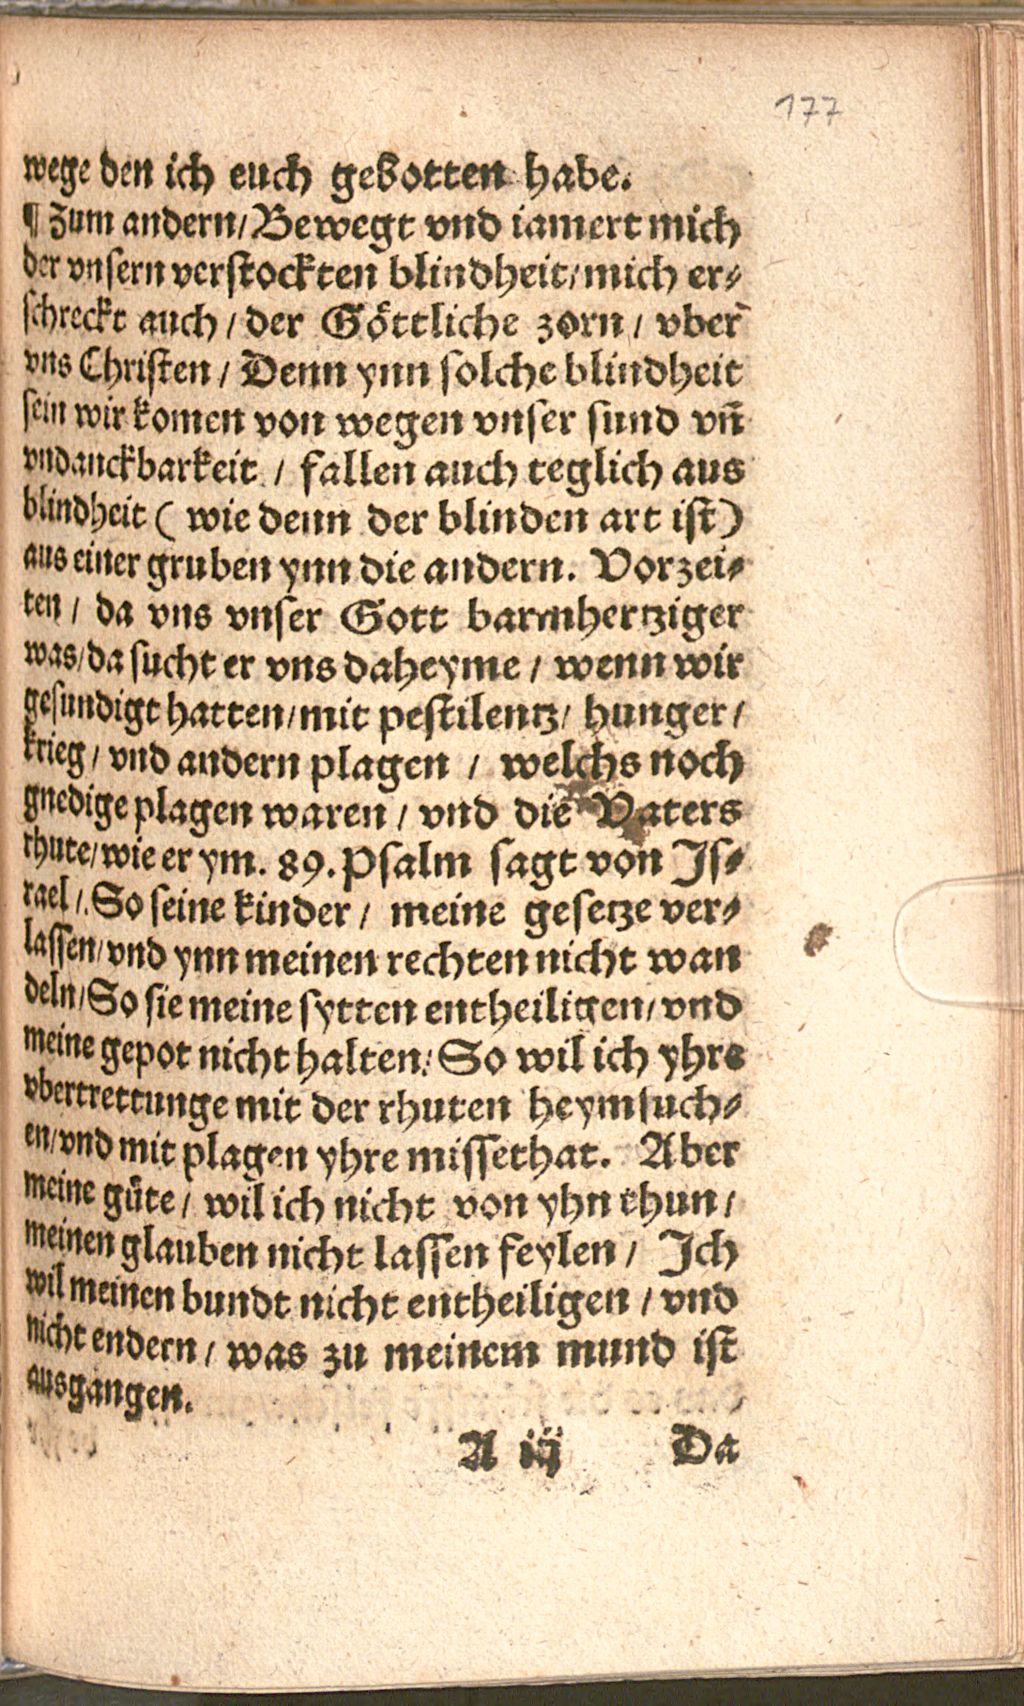 177
wege den ich euch gebotten habe.
¶ Zum andern/ Bewegt vnd iamert mich
der vnsern verstockten blindheit/ mich er⸗
schreckt auch / der Göttliche zorn / vber
vns Christen / Denn ynn solche blindheit
sein wir komen von wegen vnser sund vñ
vndanckbarkeit / fallen auch teglich aus
blindheit ( wie denn der blinden art ist)
aus einer gruben ynn die andern. Vorzei⸗
ten / da vns vnser Gott barmhertziger
was/ da sucht er vns daheyme / wenn wir
gesundigt hatten/ mit pestilentz/ hunger /
krieg / vnd andern plagen / welchs noch
gnedige plagen waren / vnd die Vaters
rhute/ wie er ym. 89. Psalm sagt von Js⸗
rael /. So seine kinder / meine gesetze ver⸗
lassen/ vnd ynn meinen rechten nicht wan
deln/ So sie meine sytten entheiligen/ vnd
meine gepot nicht halten: So wil ich yhre
vbertrettunge mit der rhuten heymsuch⸗
en/ vnd mit plagen yhre missethat. Aber
meine güte / wil ich nicht von yhn thun /
meinen glauben nicht lassen feylen / Jch
wil meinen bundt nicht entheiligen / vnd
nicht endern / was zu meinem mund ist
ausgangen.
A iij Da